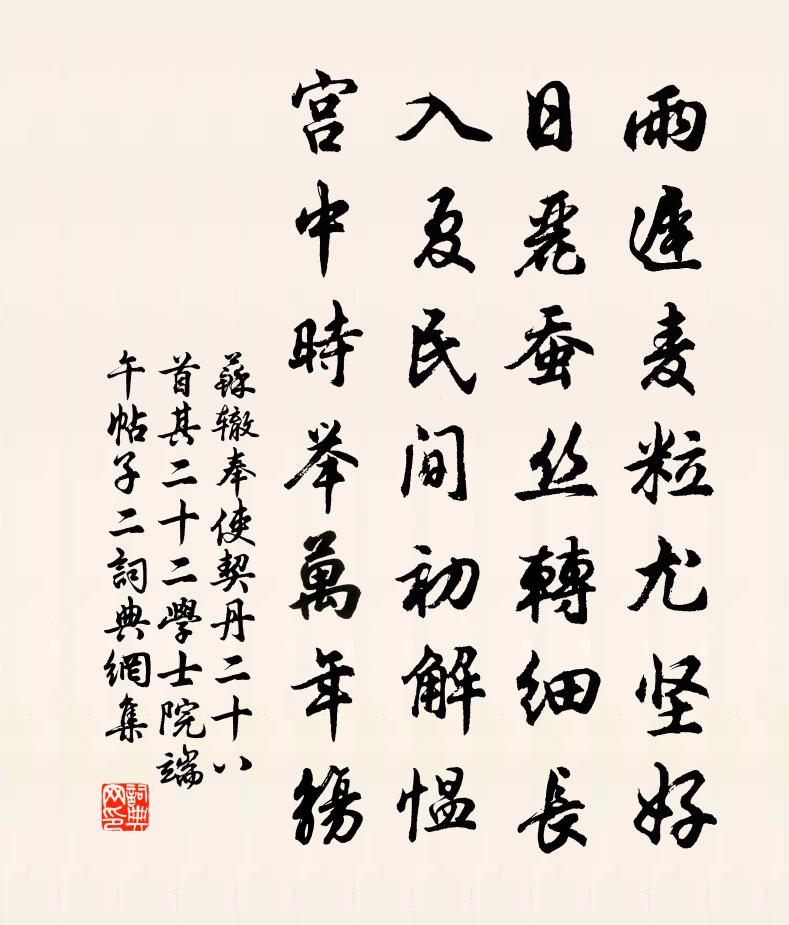 雨遲麦粒尤坚好
日麗蚕丝轉细長
入夏民间初解愠
宫中時举萬年觞
蘇辙奉使契丹二十八
首其二十二學士院端
午帖子二詞典網集
詞典网印